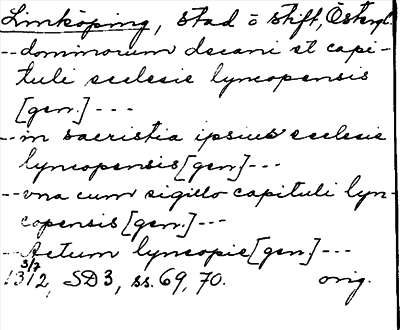 Linköping, stad o stift, Östergl.
-- dominorum decani et capi-
tuli ecclesie lyncopensis
[gen.] ---
-- in sacristia ipsius ecclesie
lyncopensis [gen] ---
-- vna cum sigillo capituli lyn-
copensis [gen.] ---
-- Actum lyncopie [gen] ---
3/7
1312, SD3, ss. 69, 70. orig.